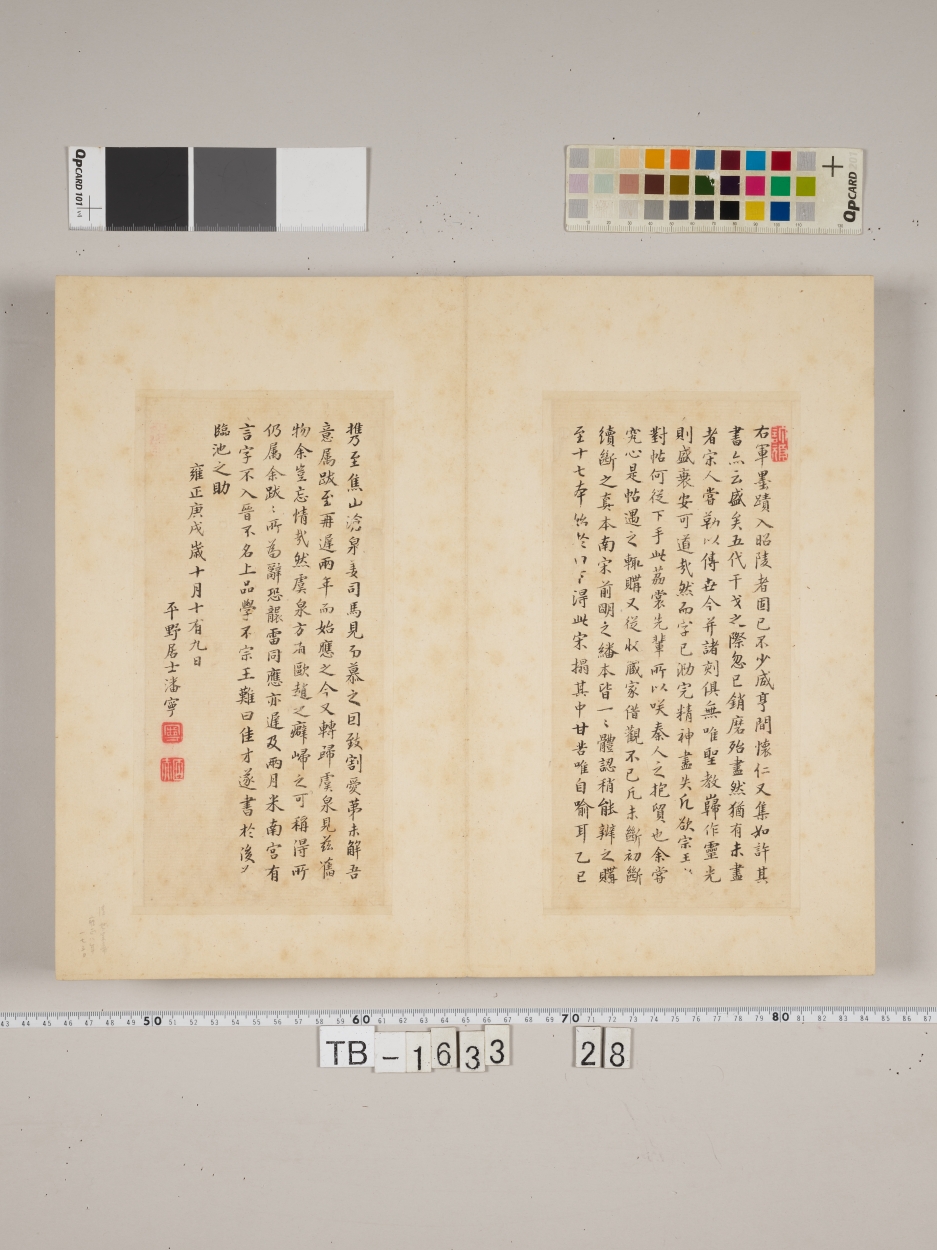 右軍墨蹟入昭陵者固已不少咸亨間懷仁又集如許其
書亦云盛矣五代干戈之際忽已銷磨殆盡然猶有未盡
者宋人嘗勒以傳世今并諸刻俱無唯聖教巋作靈光
則盛衰安可道哉然而字已泐完精神盡失凡欲宗王
對帖何從下手此蒻裳先輩所以咲秦人之抱質也余嘗
究心是帖遇之輒購又從收藏家借觀不已凡未斷初斷
續斷之真本南宋前明之繙本皆一〻體認稍能辯之購
至十七本 得此宋搨其中甘苦唯自喻耳乙巳
攜至焦山滄泉姜司馬見而慕之因致割愛第未解吾
意属跋至再遲兩年而始應之今又轉歸虞泉見茲舊
物余豈忘情哉然虞泉方有歐趙之癖歸之可稱得所
仍属余跋〻所為辭恐龂雷同應亦遲及兩月米南宮有
言字不入晉不名上品學不宗王難曰佳才遂書於後以
臨池之助
雍正庚戌歲十月十有九日
平野居士潘寧
QPCARD 101 v4
QPCARD 201
43 44 45 46 47 48 49 50 51 52 53 54 55 56 57 58 59 60 61 62 63 64 65 66 67 68 69 70 71 72 73 74 75 76 77 78 79 80 81 82 83 84 85 86 87
TB-1633 28